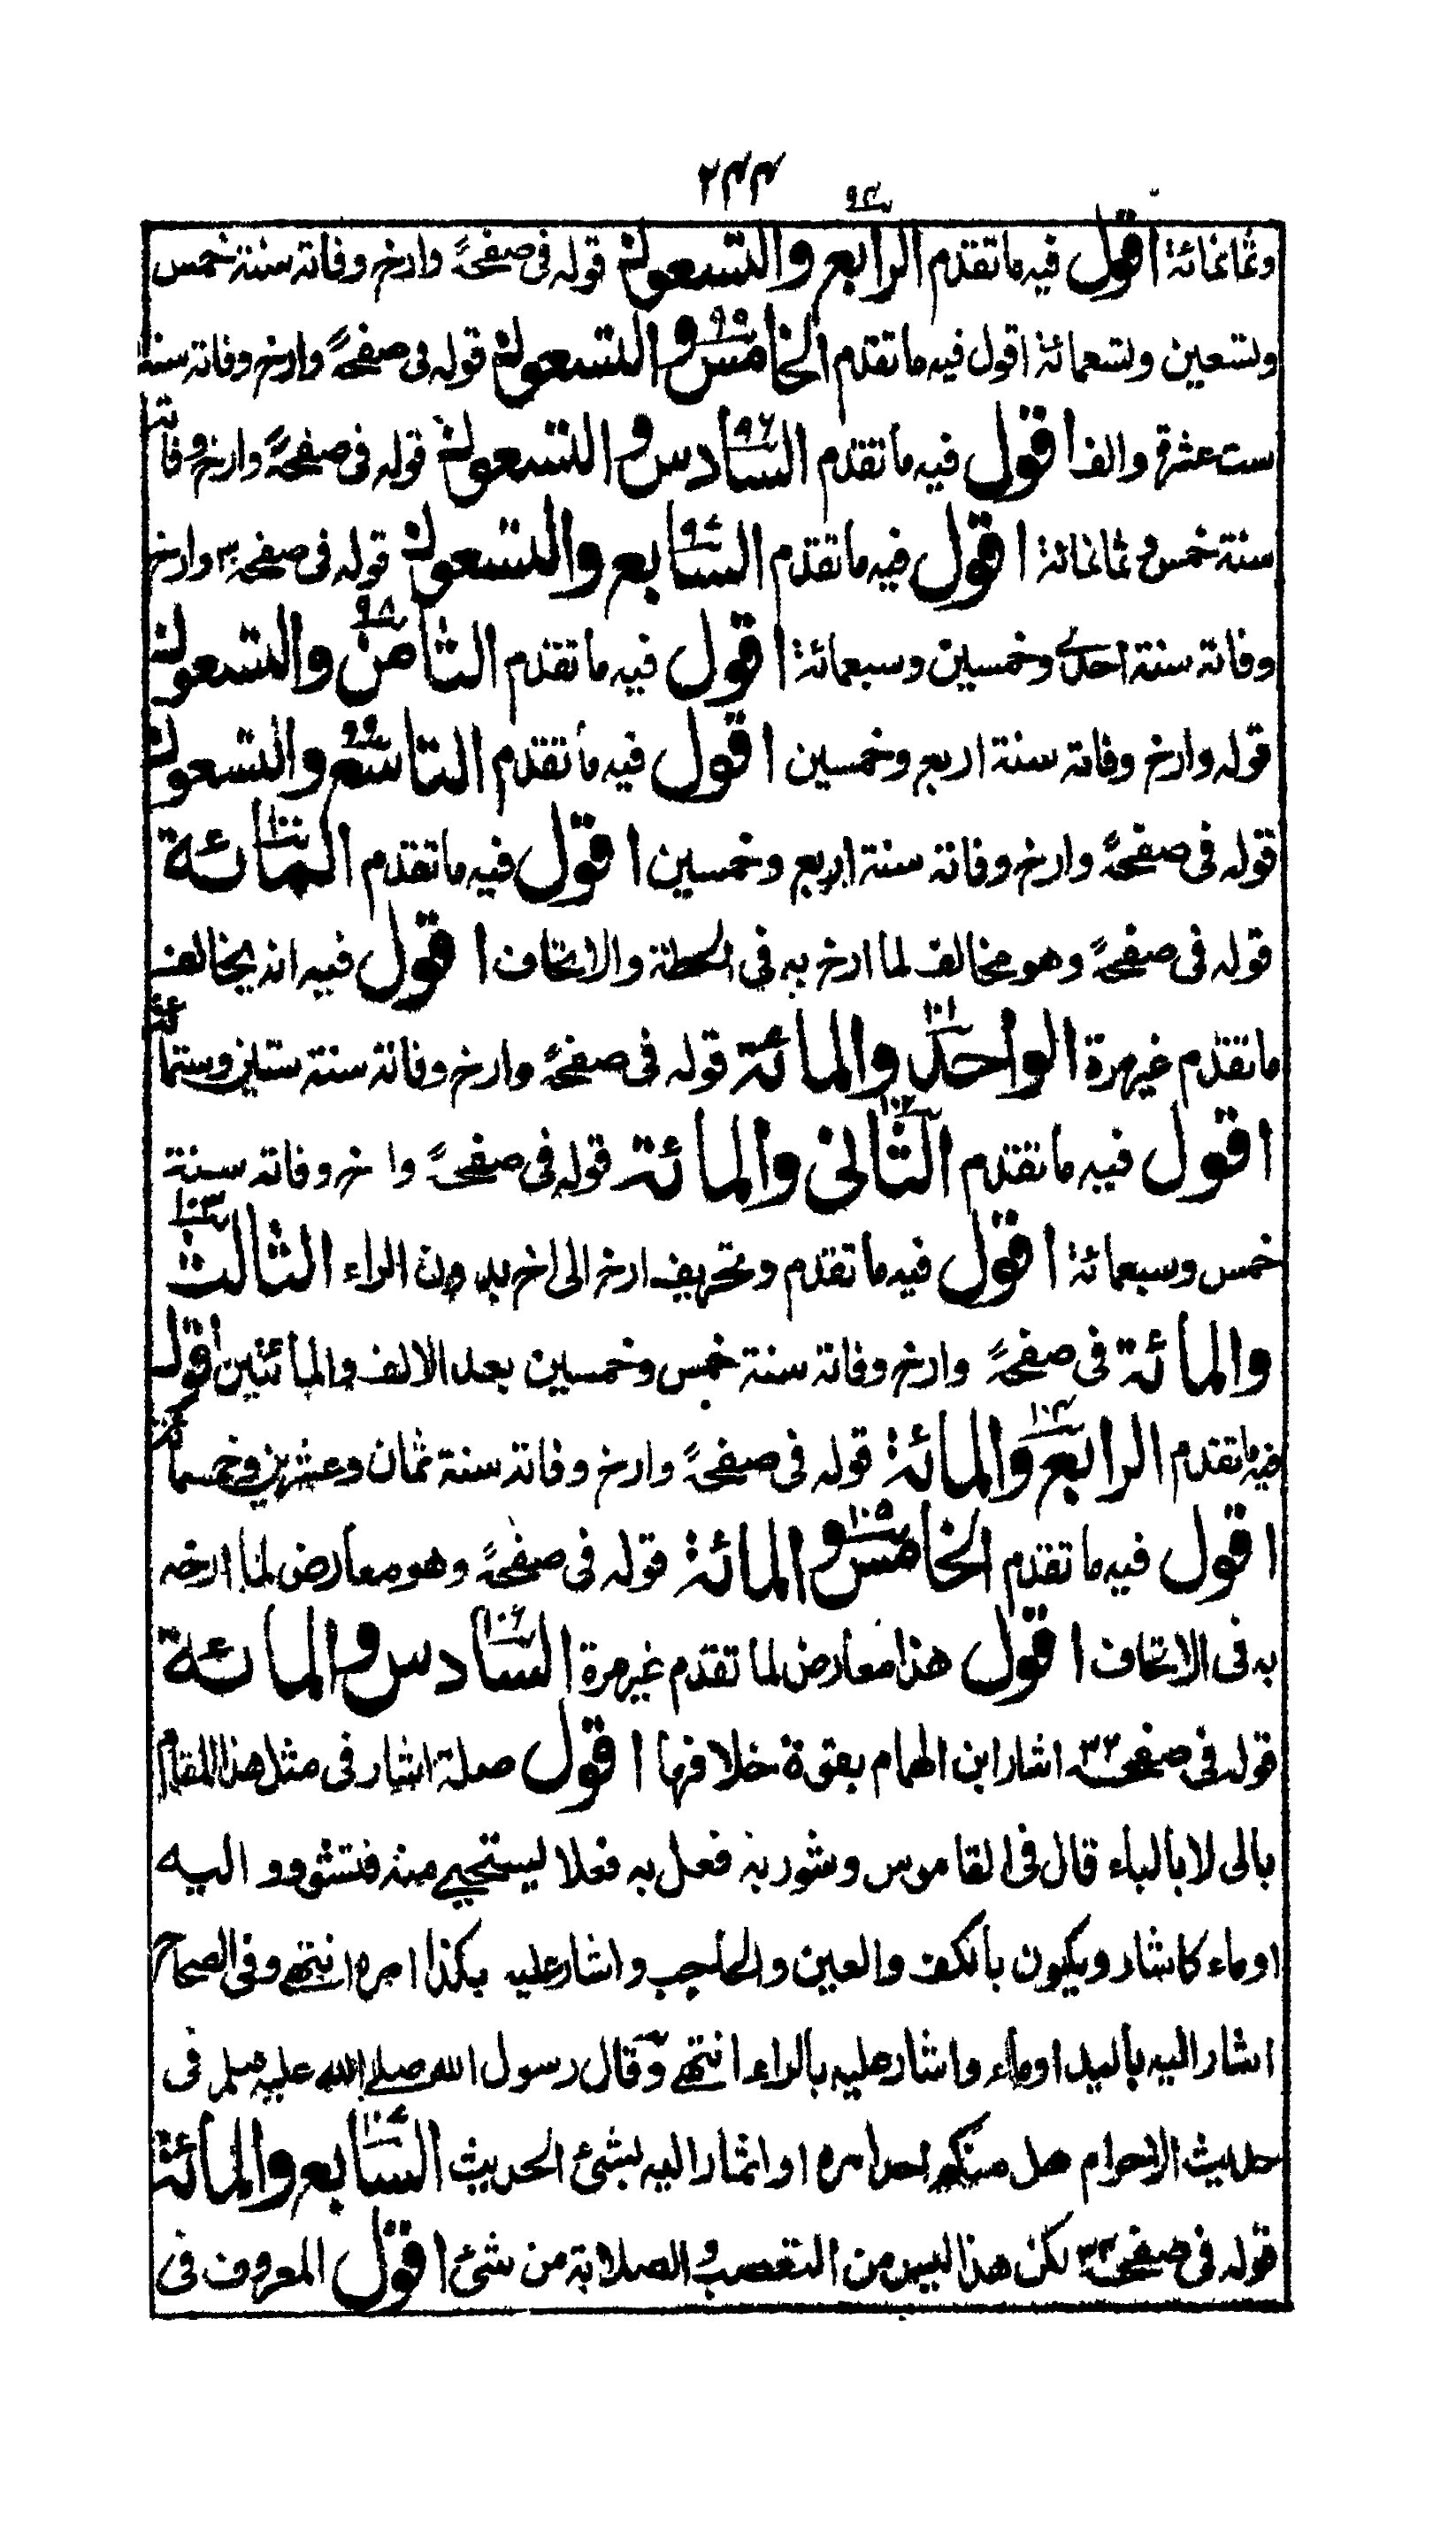 ۲۴۴
۹۴
وثمانمائة اقول فيه ما تقدم الرابع والتسعون قوله فى صفحة وارخ وفاته سنة خمس
وتسعين وتسعمائة اقول فيه ما تقدم الخامس ۹۵ والتسعون قوله فى صفحة وارخ وفاته سنة
ست عشرة والف اقول فيه ما تقدم السادس ۹۶ والتسعون قوله فى صفحة وارخ وفاته
سنة خمس وثمانمائة اقول فيه ما تقدم السابع ۹۷ والتسعون قوله فى صفحه ۳۰ وارخ
وفاته سنة احدى وخمسين وسبعمائة اقول فيه ما تقدم الثامن ۹۸ والتسعون
قوله وارخ وفاته سنة اربع وخمسين اقول فيه ما تقدم التاسع ۹۹ والتسعون
قوله فى صفحة وارخ وفاته سنة اربع وخمسين اقول فيه ما تقدم المائة ۱۰۰
قوله فى صفحة وهو مخالف لما ارخ به في الحطة والاتحاف اقول فيه انه يخالف
ما تقدم غير مرة الواحد ۱۰۱ والمائة قوله فى صفحة وارخ وفاته سنة ستين وستمائة
اقول فيه ما تقدم الثانى ۱۰۲ والمائة قوله فى صفحة وا خر وفاته سنة
خمس وسبعمائة اقول فيه ما تقدم وتحريف ارخ الى اخر بدون الراء الثالث ۱۰۳
والمائة فى صفحة وارخ وفاته سنة خمس وخمسين بعد الالف والمائتين اقول
فيه ما تقدم الرابع ۱۰۴ والمائة قوله فى صفحة وارخ وفاته سنة ثمان وعشرين وخمسمائة
اقول فيه ما تقدم الخامس ۱۰۵ والمائة قوله فى صفحة وهو معارض لما ارخه
به فى الاتحاف اقول هذا معارض لما تقدم غير مرة السادس ۱۰۶ والمائة
قوله فى صفحه ۳۳ اشار ابن الهمام بقوة خلافها اقول صلة اشار فى مثل هذا المقام
بالى لا بالباء قال فى القاموس وشور به فعل به فعلا يستحيى منه فتشور و اليه
اوماء كاشار ويكون بالكف والعين والحاجب واشار عليه بكذا امره انتهى وفى الصحاح
اشار اليه باليد اوماء واشار عليه بالراء انتهى وقال رسول الله صلى الله عليه وسلم فى
حديث الاحرام هل منكم احد امره او اشار اليه بشئ الحديث السابع ۱۰۷ والمائة
قوله فى صفحه ۳۳ لكن هذا ليس من التعصب والصلابة من شئ اقول المعروف فى